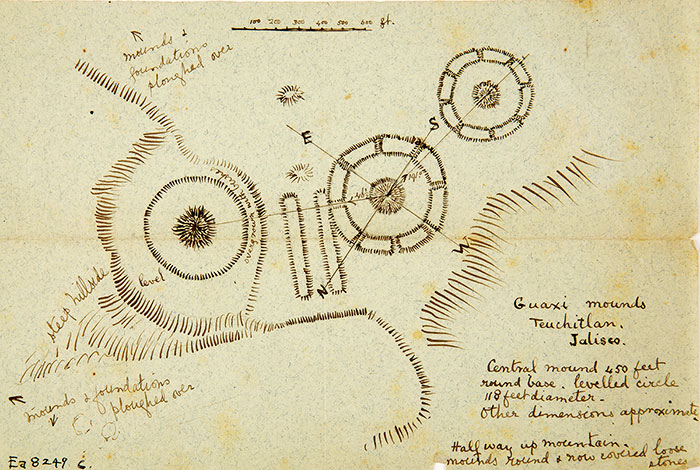 100 200 300 400 500 600 ft.
mounds &
foundations
ploughed over
E
S
W
N
level
steep hillside
mounds & foundations
ploughed over
Guaxi mounds
Teuchitlan.
Jalisco.
Central mound 450 feet
round base. levelled circle
118 feet diameter.
Other dimensions approximate
Half way up mountain.
mounds round & now covered loose
stones
Ea 8249 c.